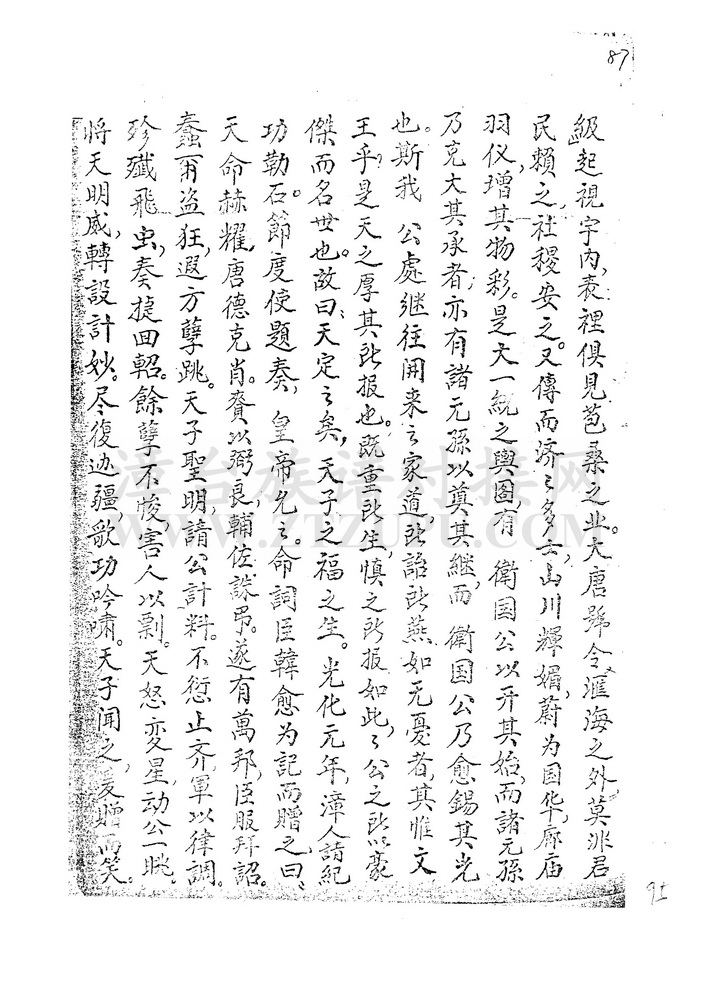 87
級起視宇内，表裡俱見苞桑之业。大唐號令滙海之外，莫非君
民賴之，社稷安之。又傳而济々多士，山川輝媚，蔚为国华，廊庙
羽仪，增其物彩。是大一統之輿图，有 衛国公以开其始，而諸元孫
乃克大其承者，亦有諸元孫以奠其継，而 衛国公乃愈錫其光
也。斯我 公處继往開来之家道，所詒所燕如无憂者，其惟文
王乎，是天之厚其所报也。既重所生，慎之所报如此，々公之所以豪
傑而名世也。故曰：天定之矣，天子之福之生。光化元年，漳人請紀
功勒石。節度使題奏，皇帝允之。命詞臣韓愈为記而贈之曰：
天命赫耀，唐德克肖。賚以弼良，輔佐誅弔。遂有萬邦，臣服拜詔。
蠢爾盗狂，遐方孽跳。天子聖明，請公計料。不愆止齐，軍以律調。
殄殲飛虫，奏捷回軺。餘孽不悛，害人以剽。天怒变星，动公一眺。
将天明威，轉設計妙。尽復边疆，歌功吟嘯。天子闻之，爰赠而笑。
漳台族谱对接网
WWW.ZTZUPU.COM